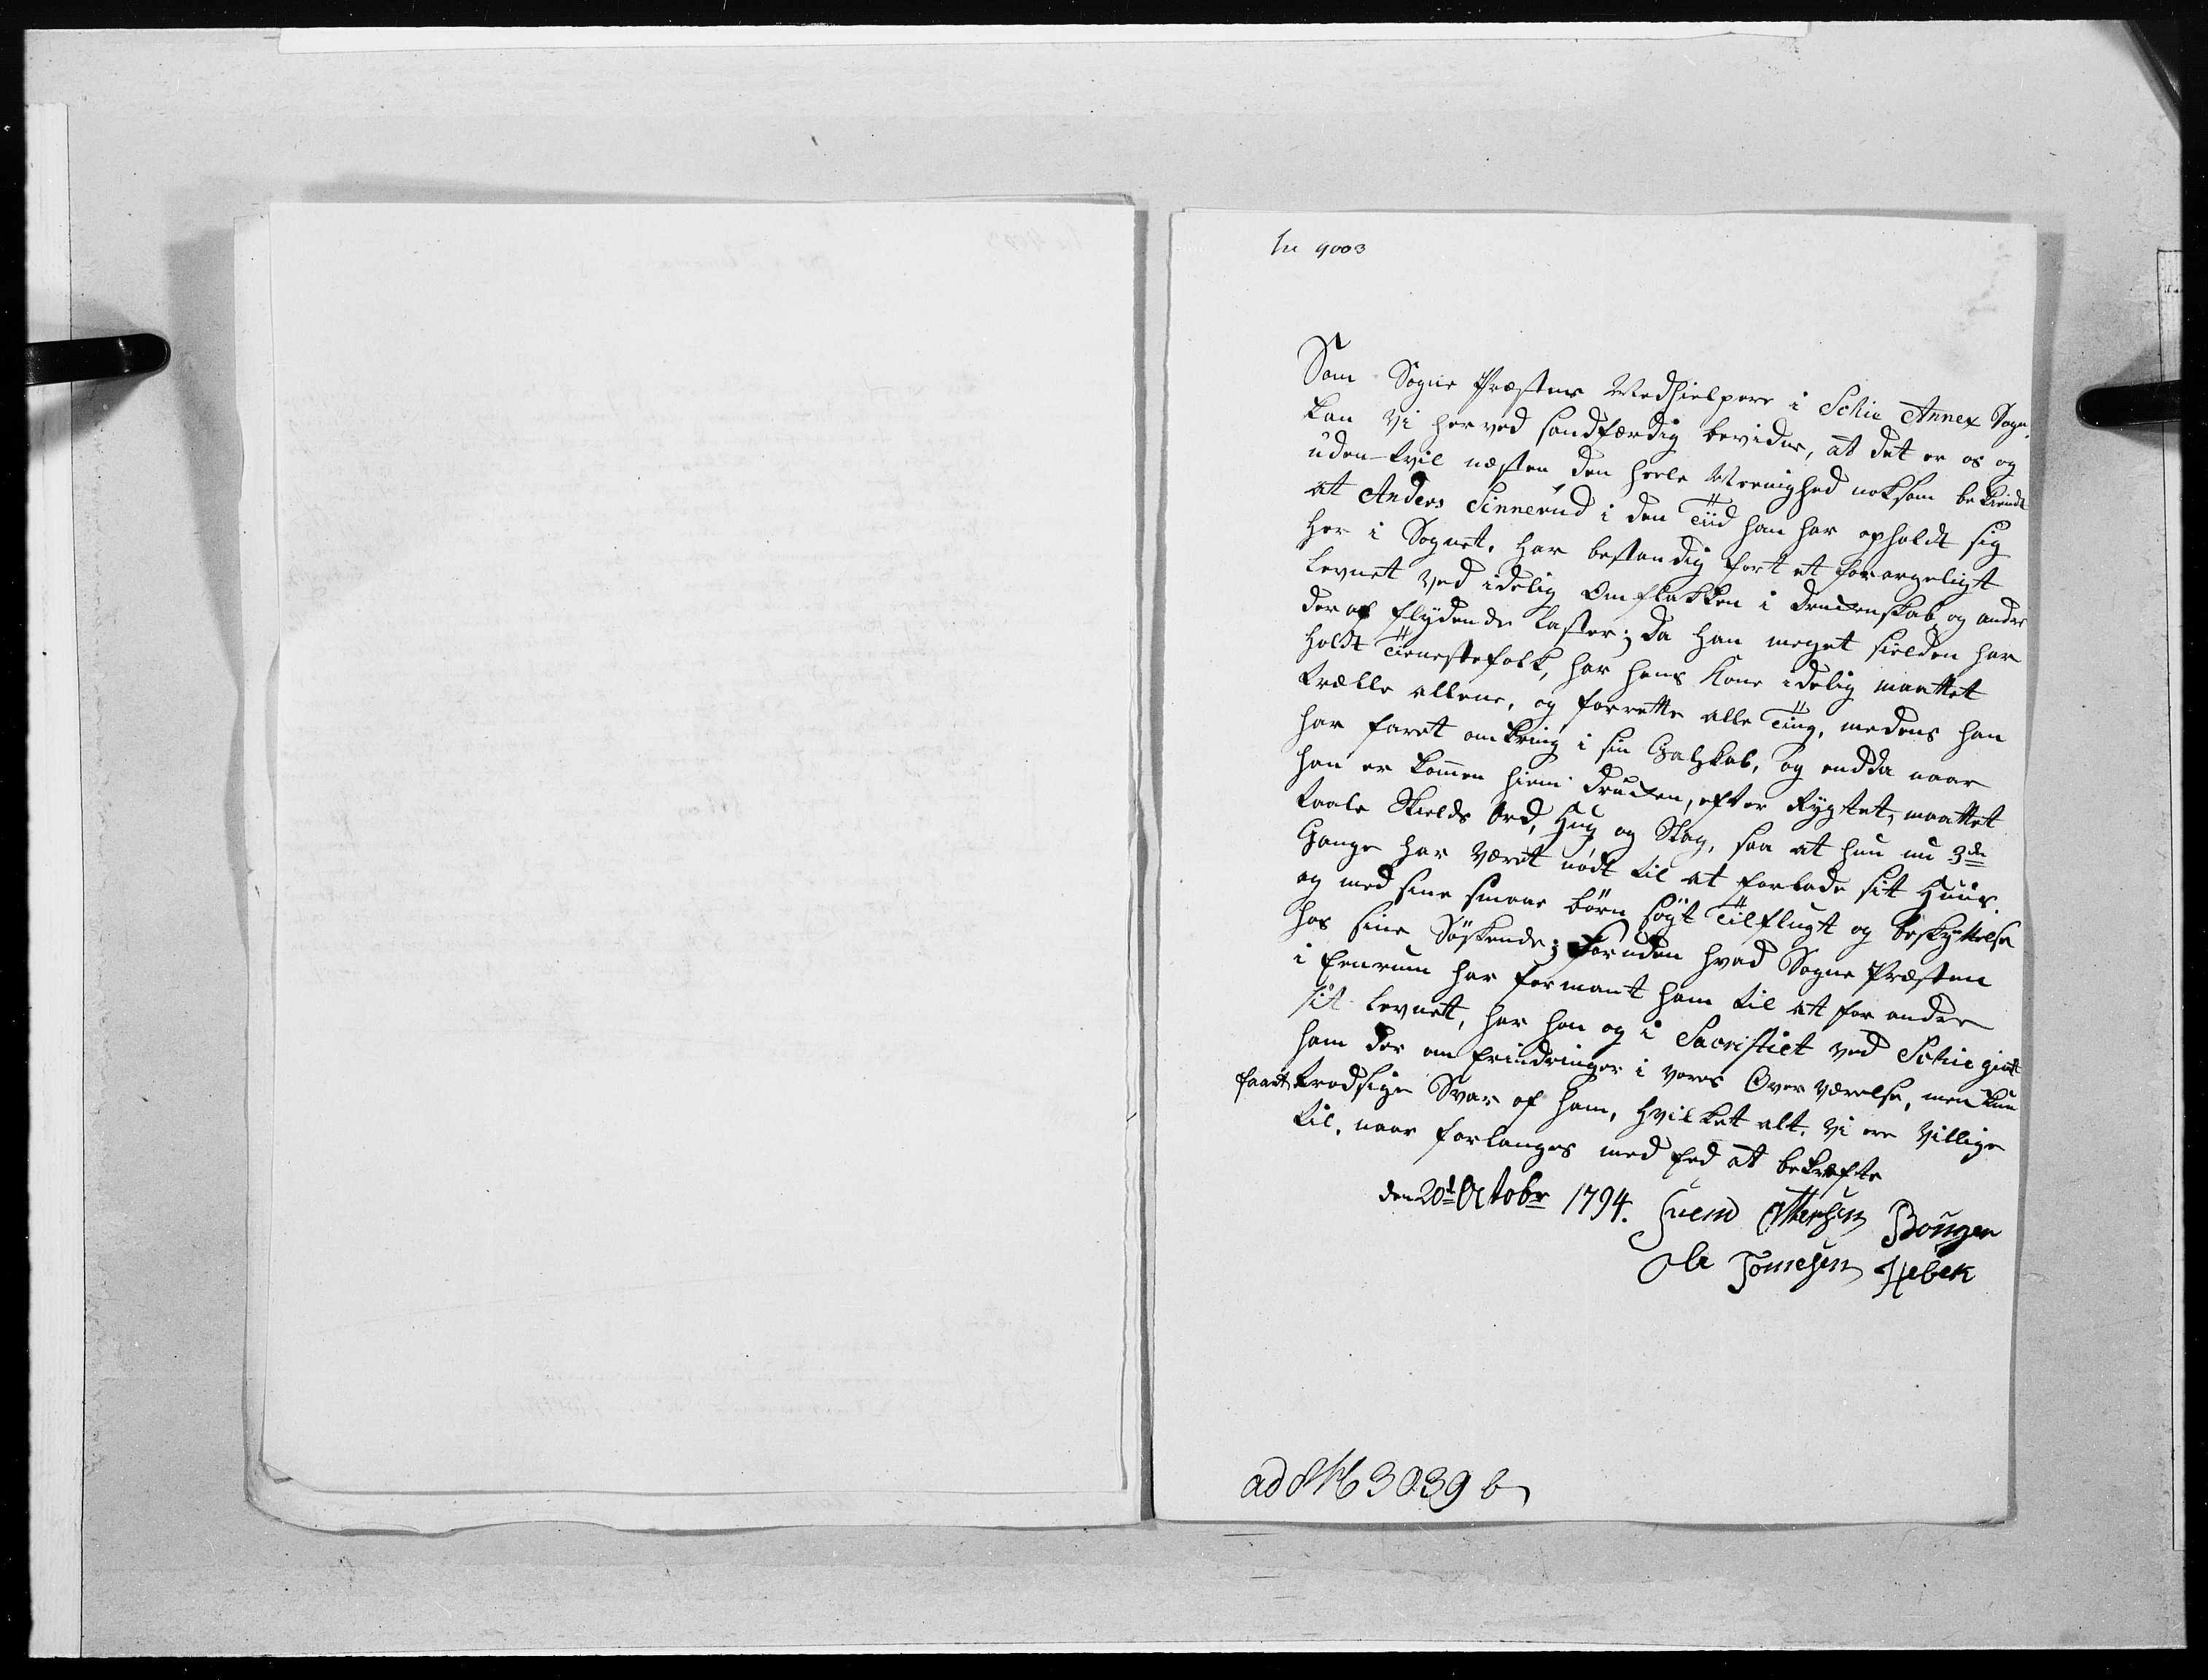 In 4003
Som Sogne Præstens Medhielpere i Schie Annex Sogn,
kan Vi herved sandfærdig bevidne, at det er os og
uden tvil næsten den heele Meenighed noksom bekiendt
at Anders Sinnerud i den Tiid han har opholdt sig
her i Sognet, har bestandig ført et forargeligt
Levnet ved idelig Omflakken i Druckenskab og andre
deraf flydende Laster; da han meget sielden har
holdt Tienestefolk, har hans Kone idelig maattet
trælle allene, og forrette alle Ting, medens han
har faret omkring i sin Galskab, og endda naar
han er kommen hiem drucken, efter Rygtet, maattet
taale Skields Ord, Hug og Slag, saa at hun nu 3de
Gange har været nødt til at forlade sit Huus.
og med sine smaae Børn søgt Tilflugt og beskyttelse
hos sine Søskende; foruden hvad Sogne Præsten
i Eenrum har formant ham til at forandre
sit Levnet, har han og i Sacristiet ved Schie giort
ham der om Erindringer i vores Overværelse, men kun
faaet trodsige Svar af ham, hvilket alt, Vi ere Villige
til, naar forlanges med Eed at bekræfte
den 20d Octobr 1794. Suend Ottersen Bougen
Ole Tomesen Hebek
ad N 3039 b